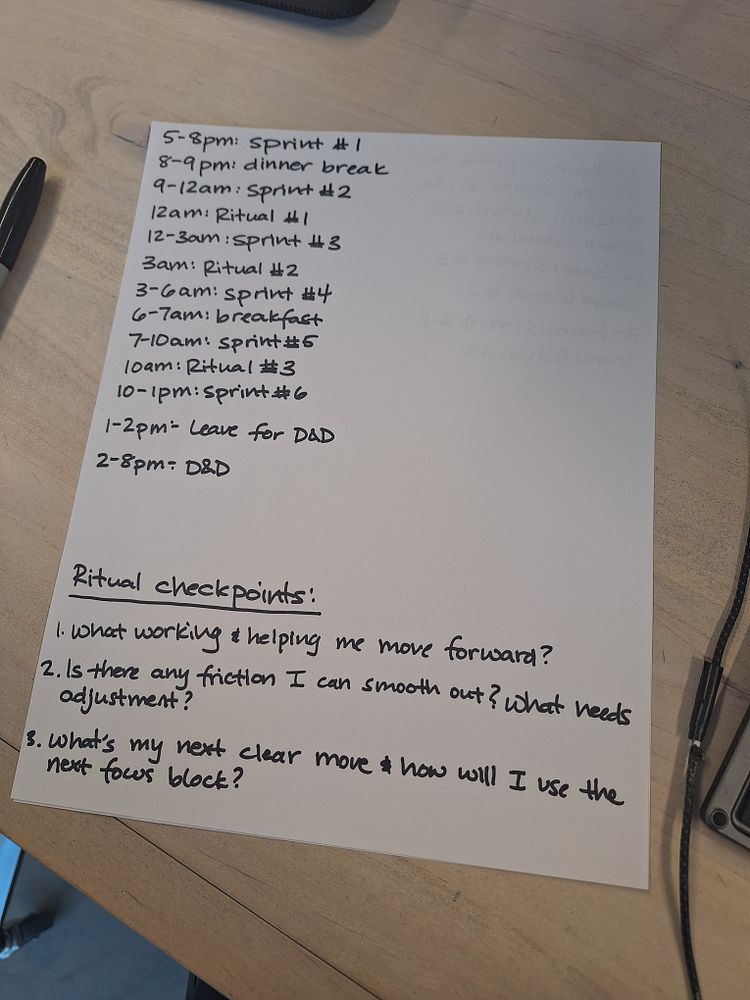 5-8pm: sprint #1
8-9pm: dinner break
9-12am: sprint #2
12am: Ritual #1
12-3am: sprint #3
3am: Ritual #2
3-6am: sprint #4
6-7am: breakfast
7-10am: sprint #5
10am: Ritual #3
10-1pm: sprint #6
1-2pm- Leave for D&D
2-8pm- D&D
Ritual checkpoints:
1. What working & helping me move forward?
2. Is there any friction I can smooth out? What needs
adjustment?
3. What's my next clear move & how will I use the
next focus block?